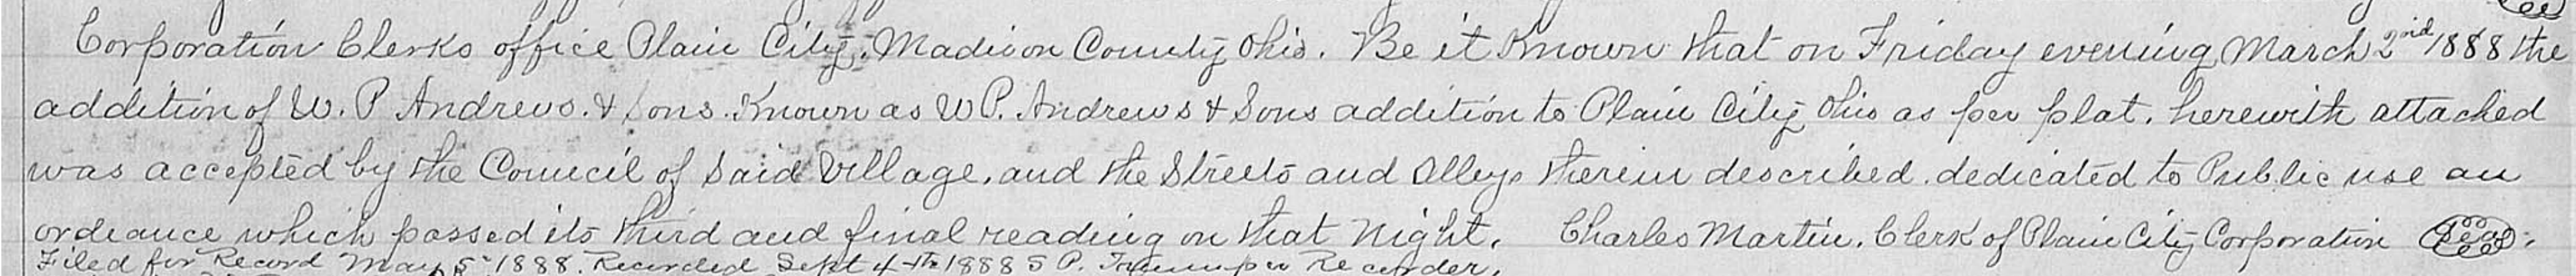 Corporation Clerks office Plain City, Madison County Ohio. Be it Known that on Friday evening March 2nd 1888 the
addition of W. P Andrews. & Sons. Known as W P. Andrews & Sons addition to Plain City Ohio as per plat. herewith attached
was accepted by the Council of Said Village, and the Streets and Alleys therein described. dedicated to Public use an
ordeance which passed its third and final reading on that Night. Charles Martin. Clerk of Plain City Corporation Seal
Filed for Record May 5th 1888. Recorded Sept 4th 1888 S P. Recorder.